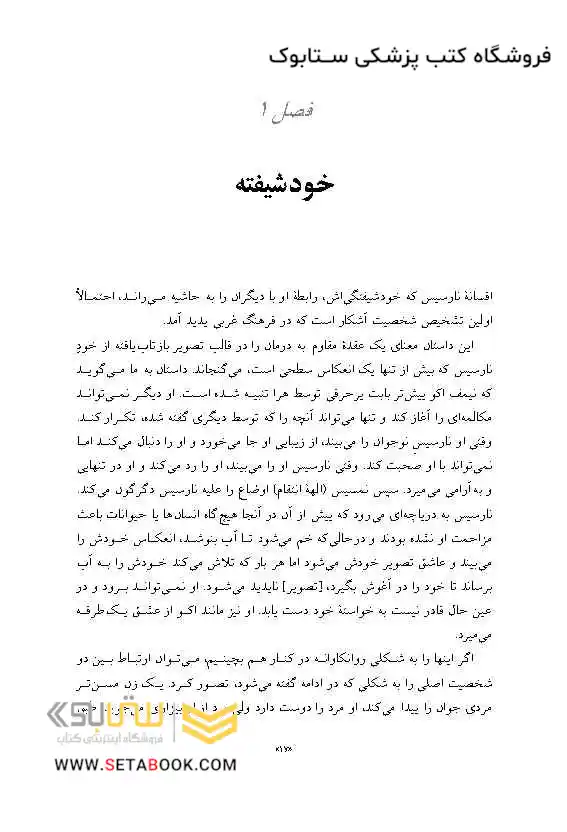 فروشگاه کتب پزشکی ستابوک
فصل ۱
خودشیفته
افسانهٔ نارسیس که خودشیفتگی‌اش، رابطهٔ او با دیگران را به حاشیه می‌راند، احتمالاً
اولین تشخیص شخصیت آشکار است که در فرهنگ غربی پدید آمد.
این داستان معنای یک عقدهٔ مقاوم به درمان را در قالب تصویر بازتاب‌یافته از خودِ
نارسیس که بیش از تنها یک انعکاس سطحی است، می‌گنجاند. داستان به ما می‌گوید
که نیمف اکو پیش‌تر بابت پرحرفی توسط هرا تنبیه شده است. او دیگر نمی‌تواند
مکالمه‌ای را آغاز کند و تنها می‌تواند آنچه را که توسط دیگری گفته شده، تکرار کند.
وقتی او نارسیسِ نوجوان را می‌بیند، از زیبایی او جا می‌خورد و او را دنبال می‌کند اما
نمی‌تواند با او صحبت کند. وقتی نارسیس او را می‌بیند، او را رد می‌کند و او در تنهایی
و به‌آرامی می‌میرد. سپس نمسیس (الههٔ انتقام) اوضاع را علیه نارسیس دگرگون می‌کند.
نارسیس به دریاچه‌ای می‌رود که پیش از آن در آنجا هیچ‌گاه انسان‌ها یا حیوانات باعث
مزاحمت او نشده بودند و درحالی‌که خم می‌شود تا آب بنوشد، انعکاس خودش را
می‌بیند و عاشق تصویر خودش می‌شود اما هر بار که تلاش می‌کند خودش را به آب
برساند تا خود را در آغوش بگیرد، [تصویر] ناپدید می‌شود. او نمی‌تواند برود و در
عین حال قادر نیست به خواستهٔ خود دست یابد. او نیز مانند اکو از عشق یک‌طرفه
می‌میرد.
اگر اینها را به شکلی روانکاوانه در کنار هم بچینیم، می‌توان ارتباط بین دو
شخصیت اصلی را به شکلی که در ادامه گفته می‌شود، تصور کرد. یک زن مسن‌تر
مردی جوان را پیدا می‌کند، او مرد را دوست دارد ولی
«۱۷»
ستابوک
فروشگاه اینترنتی کتاب
WWW.SETABOOK.COM